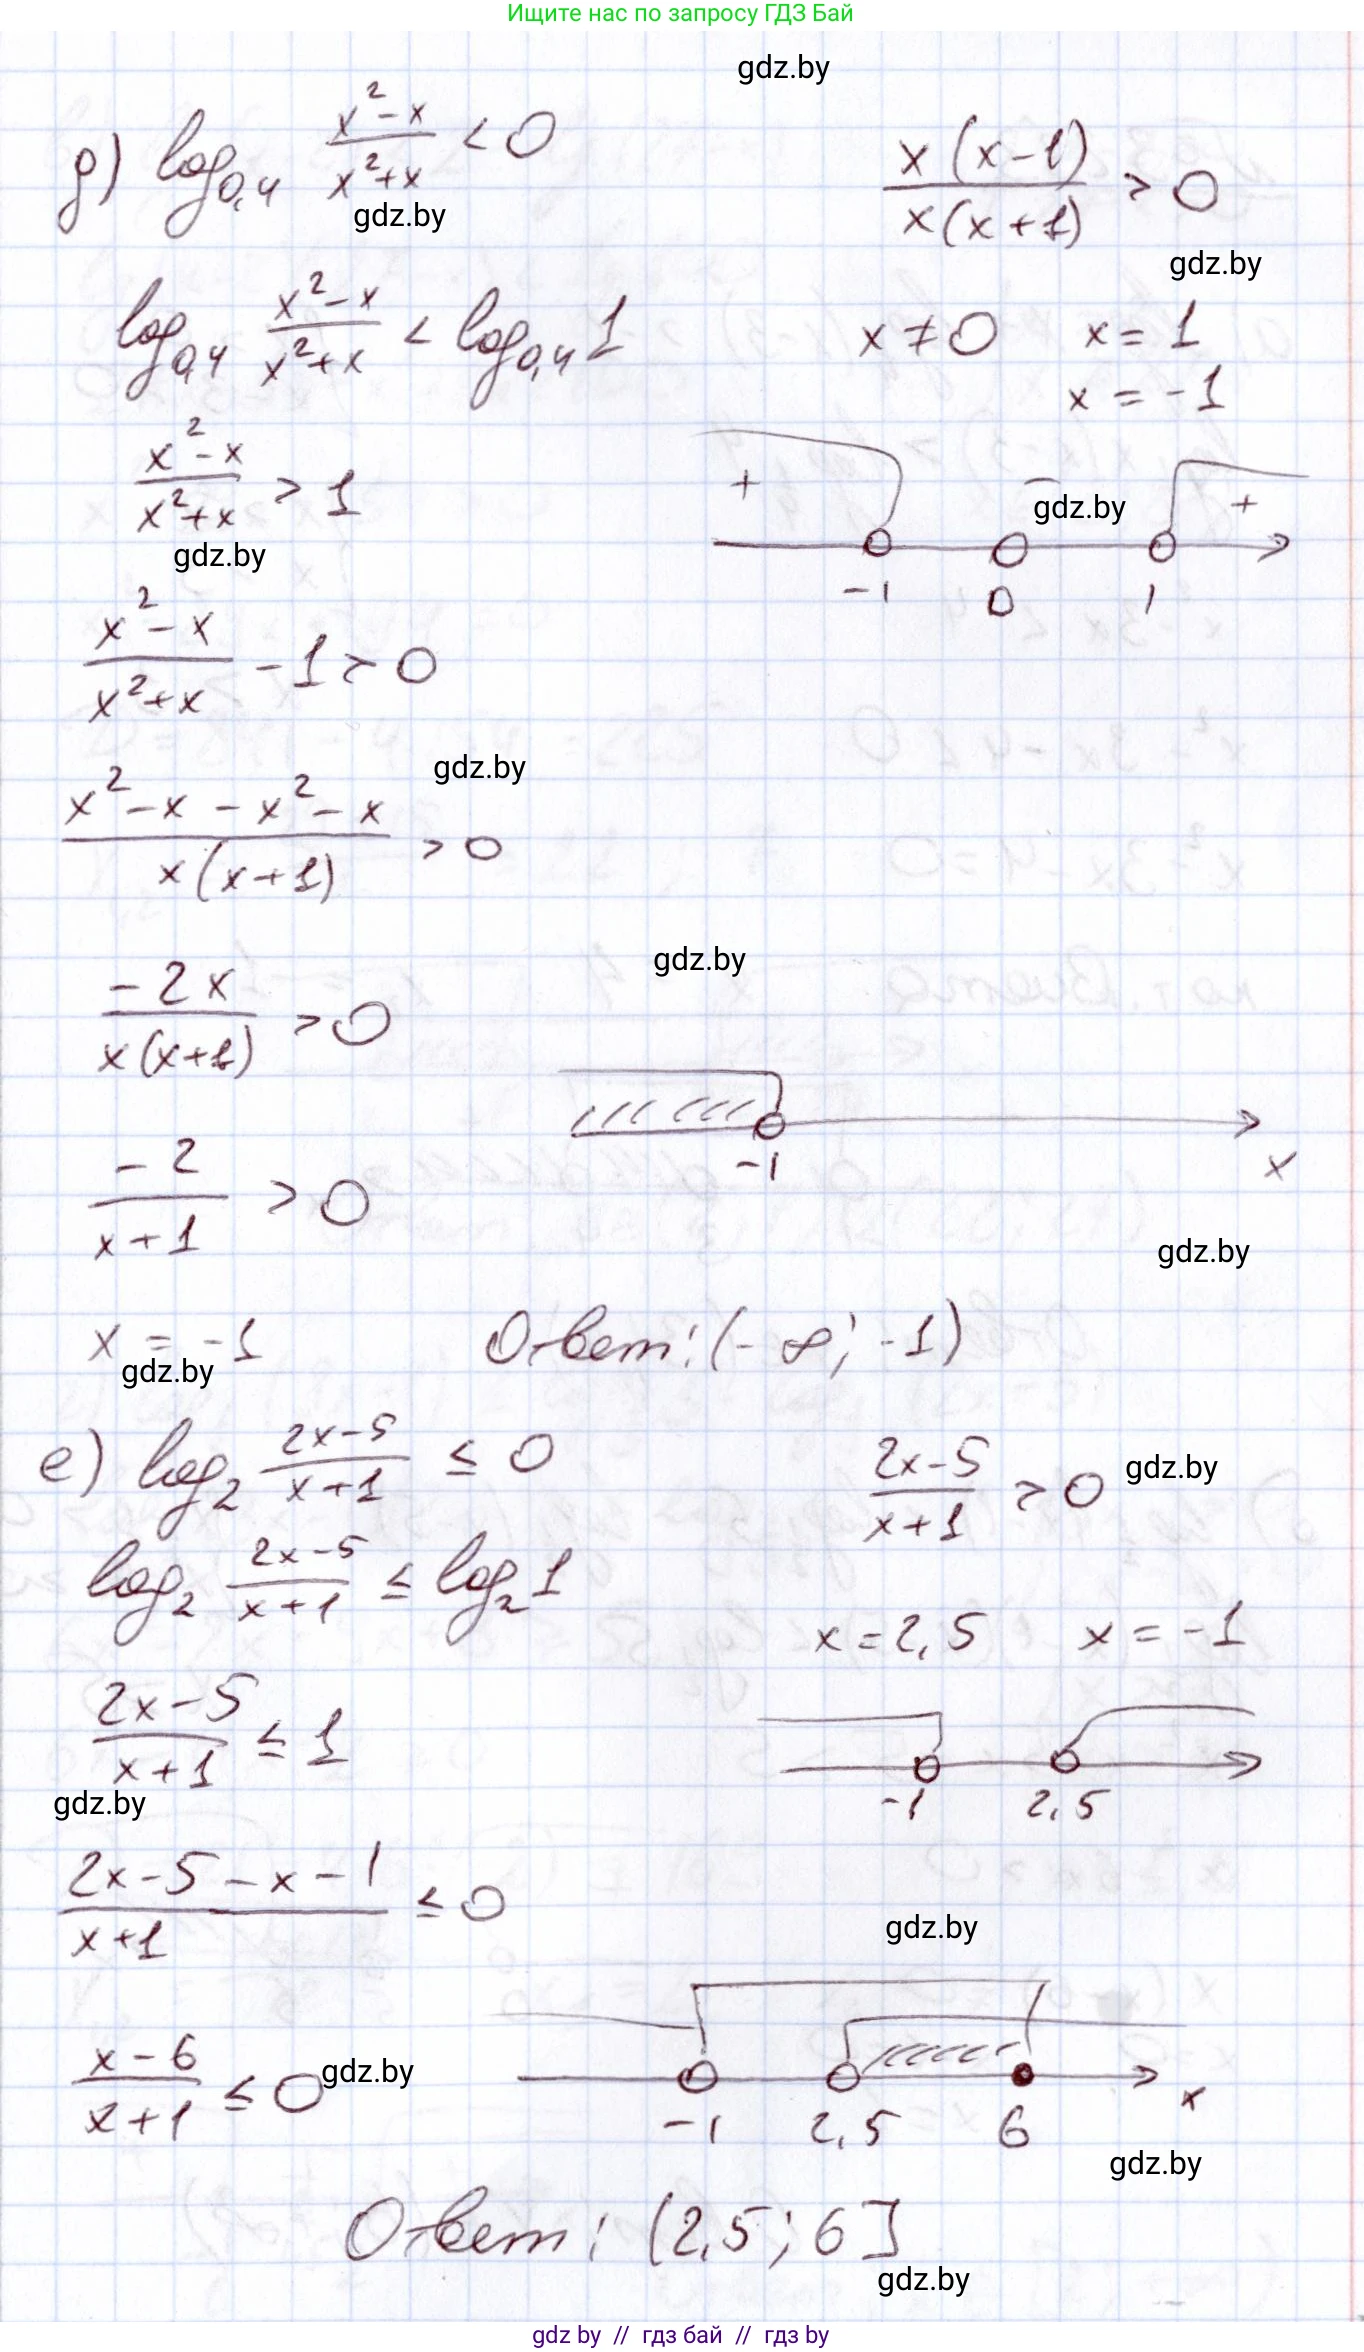 Ищите нас по запросу ГДЗ Бай
gdz.by
д) log₀,₄ (x² - x)/(x² + x) < 0
x(x-1)/x(x+1) > 0
gdz.by
gdz.by
log₀,₄ (x² - x)/(x² + x) < log₀,₄ 1
x ≠ 0 x = 1
x = -1
(x² - x)/(x² + x) > 1
+ - +
gdz.by
gdz.by
-1 0 1
(x² - x)/(x² + x) - 1 > 0
gdz.by
(x² - x - x² - x)/x(x+1) > 0
gdz.by
-2x/x(x+1) > 0
-1 x
-2/(x+1) > 0
gdz.by
x = -1
Ответ: (-∞; -1)
gdz.by
е) log₂ (2x-5)/(x+1) ≤ 0
(2x-5)/(x+1) > 0
gdz.by
log₂ (2x-5)/(x+1) ≤ log₂ 1
x = 2,5 x = -1
(2x-5)/(x+1) ≤ 1
-1 2,5
gdz.by
(2x-5-x-1)/(x+1) ≤ 0
gdz.by
(x-6)/(x+1) ≤ 0
gdz.by
-1 2,5 6 x
gdz.by
Ответ: (2,5; 6]
gdz.by
gdz by // гдз бай // гдз by